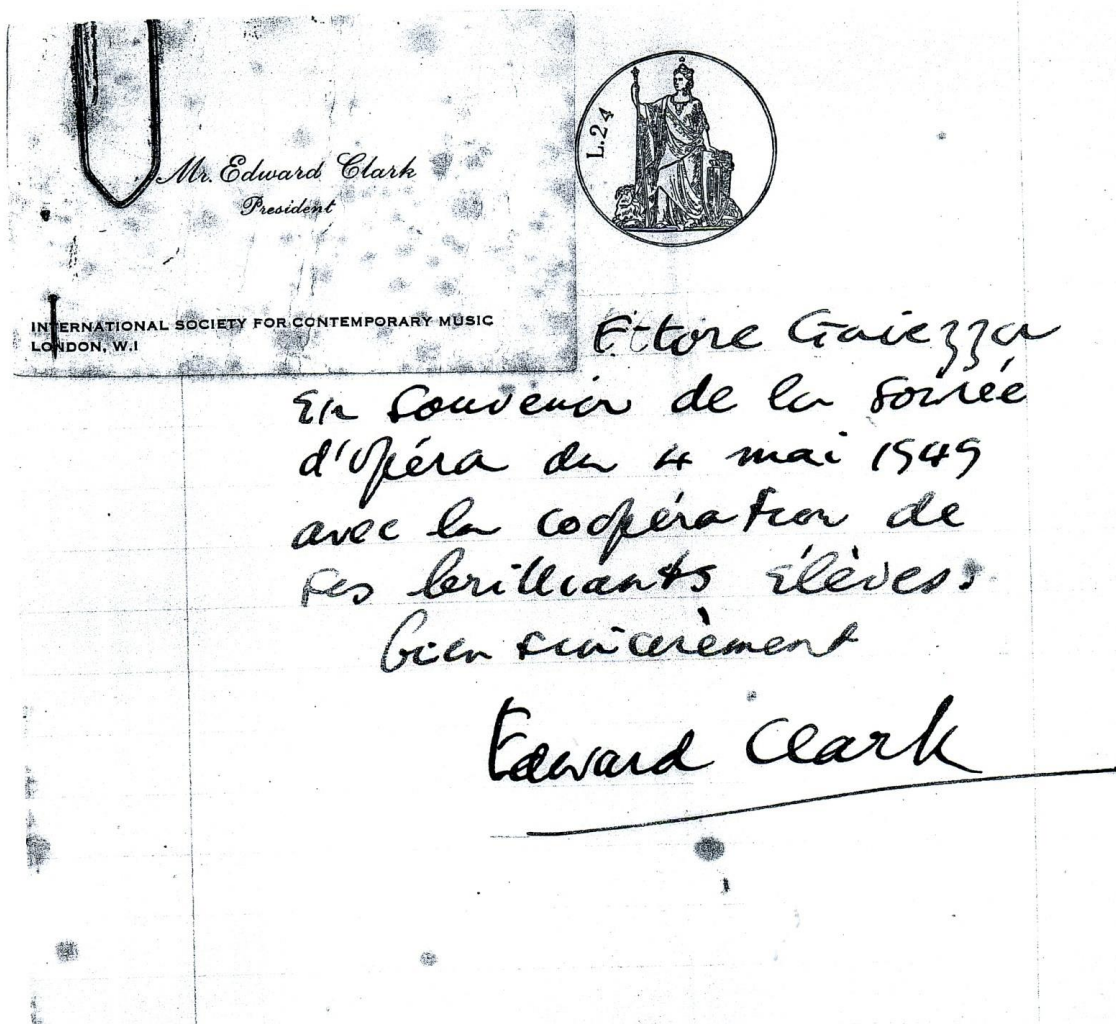 Mr. Edward Clark
President
INTERNATIONAL SOCIETY FOR CONTEMPORARY MUSIC
LONDON, W.I
L.24
Ettore Gaiezza
En souvenir de la soirée
d'opéra du 4 mai 1949
avec la coopération de
ses brilliants élèves.
bien sincèrement
Edward Clark